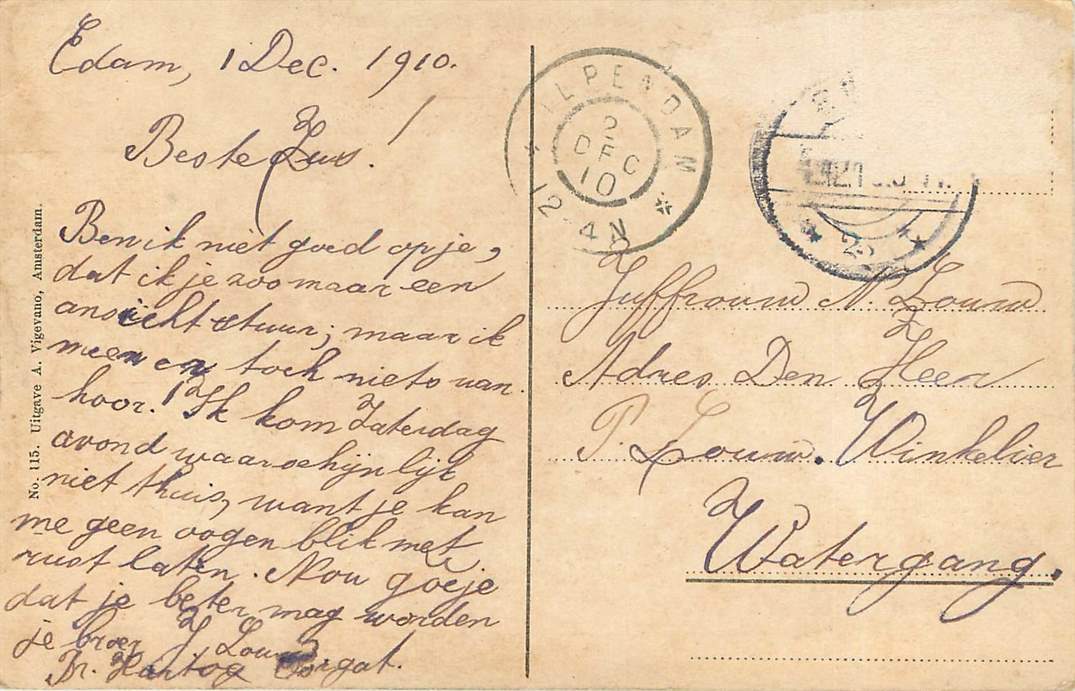 Edam, 1 Dec. 1910.
Beste Zus!
Ben ik niet goed op je,
dat ik je zoo maar een
ansicht stuur; maar ik
meen er toch niets van
hoor. Ik kom Zaterdag
avond waarschijnlijk
niet thuis, want je kan
me geen oogen blik met
rust laten. Nou goeje
dat je beter mag worden
je broer J Louw
Br. Hartog
No. 115. Uitgave A. Vigevano, Amsterdam.
ILPENDAM
2
DEC
10
12-4N
Juffrouw N. Louw
Adres Den Heer
P. Louw. Winkelier
Watergang.